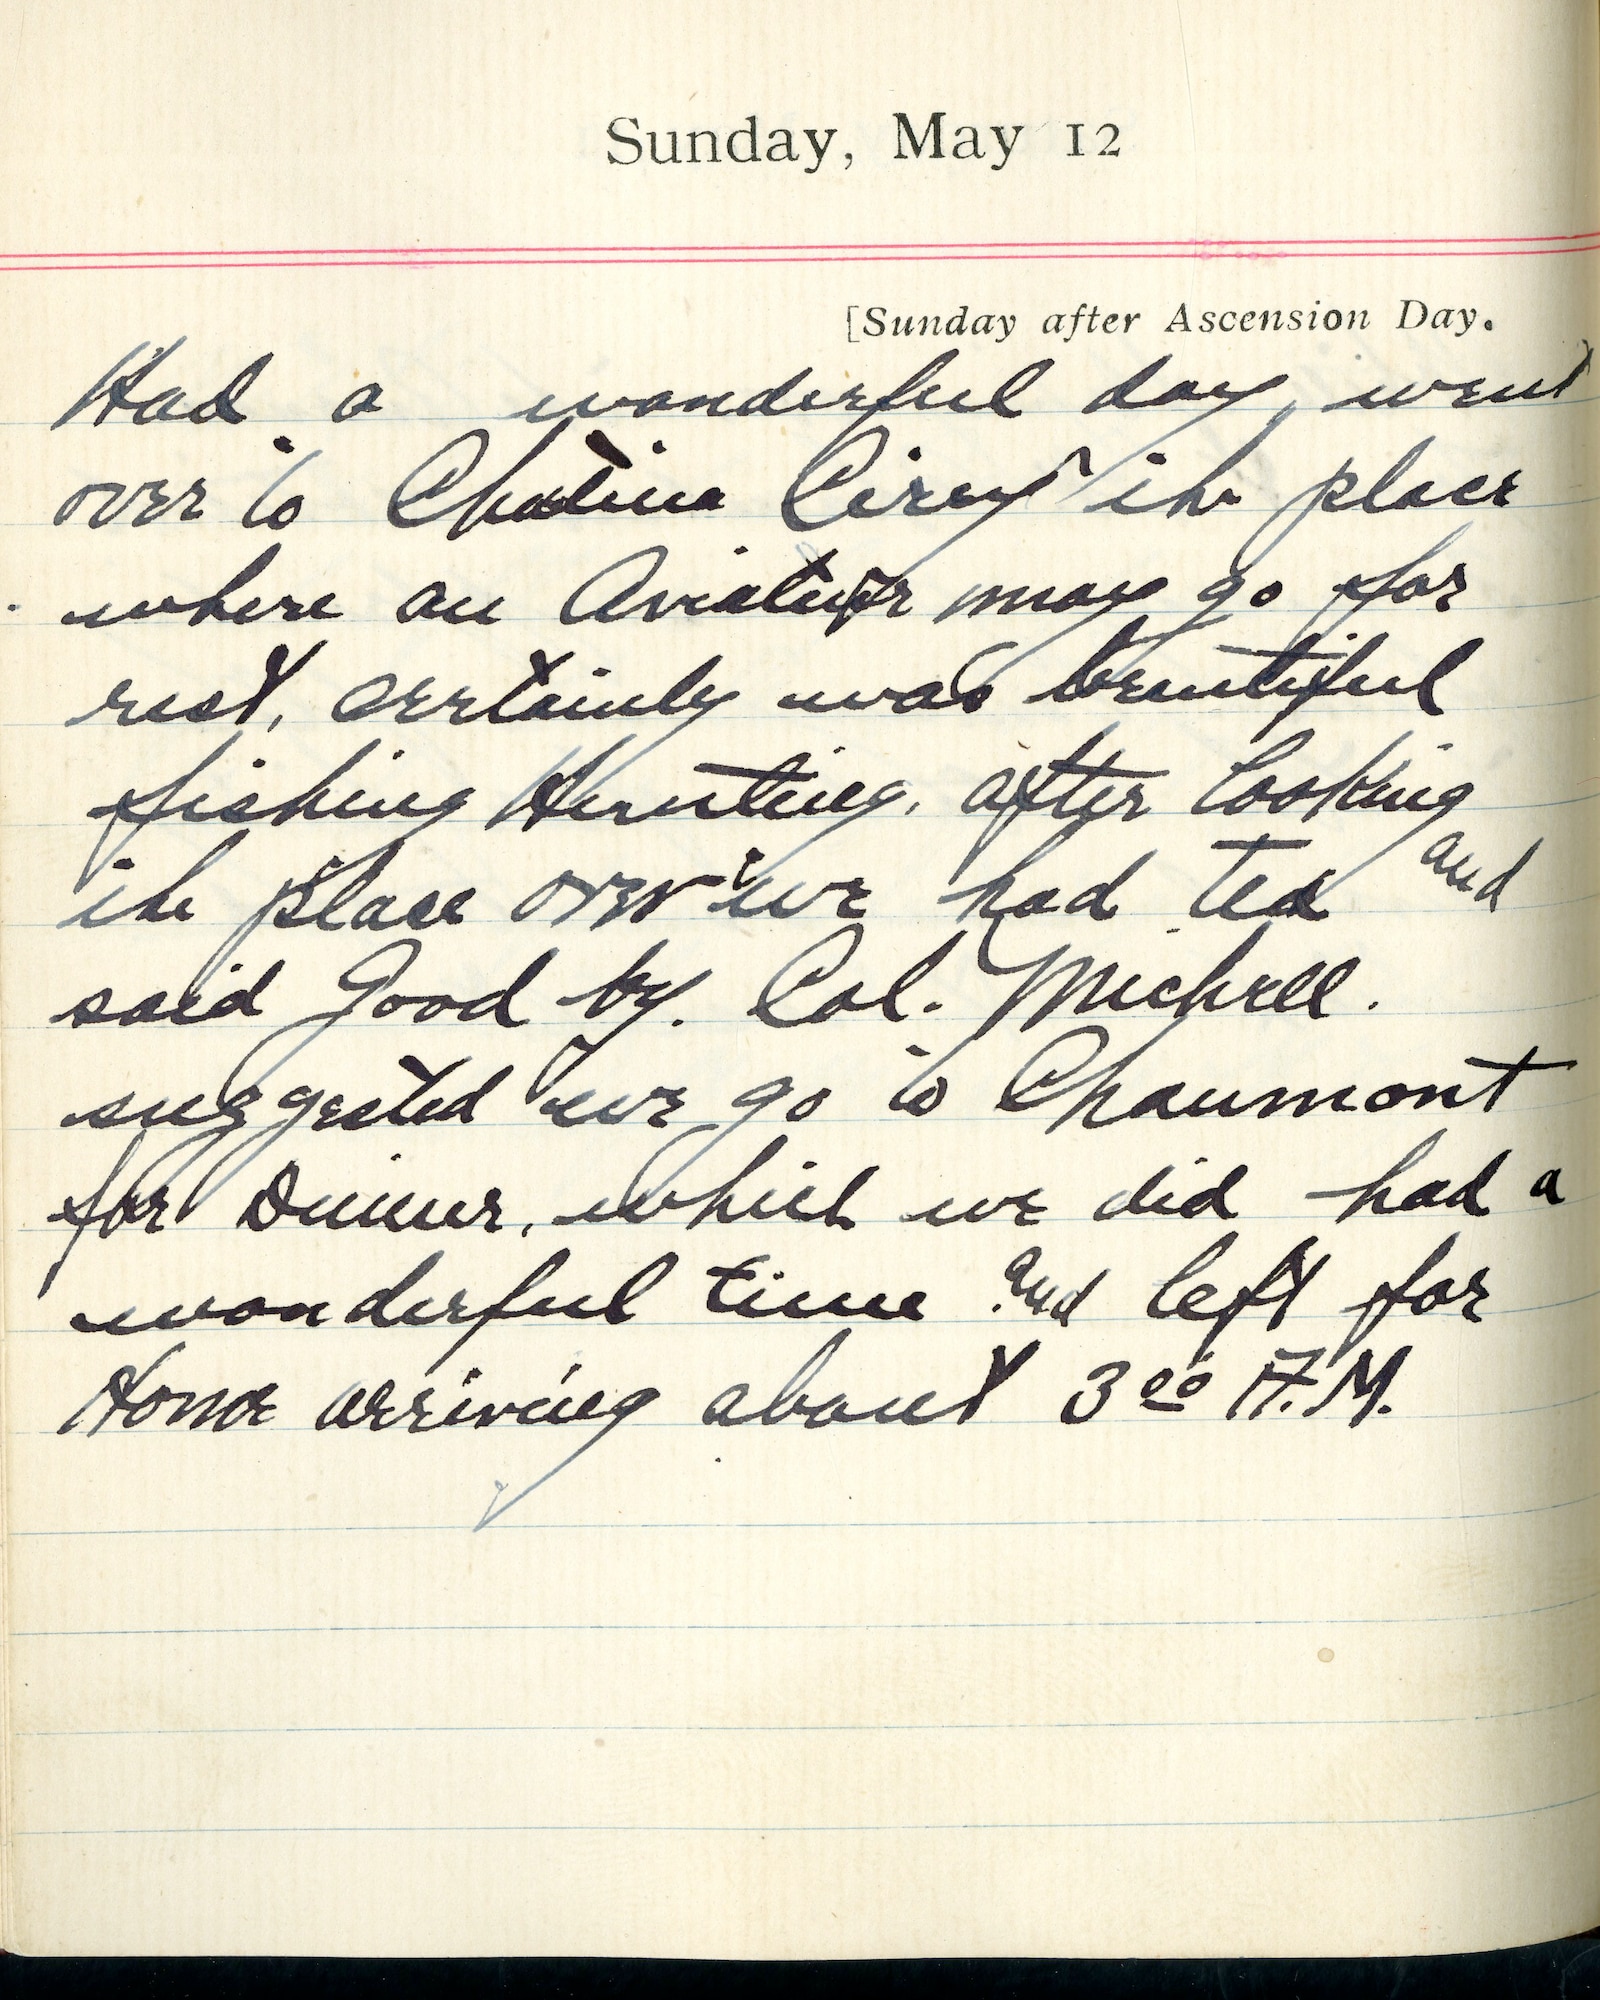 Sunday, May 12
[Sunday after Ascension Day.
Had a wonderful day, went
over to Cirey the place
where an Aviator may go for
rest, certainly was beautiful
fishing Hunting, after looking
the place over we had tea and
said Good by. Col. Michell.
suggested we go to Chaumont
for Dinner, which we did had a
wonderful time and left for
Home arriving about 3 00 A.M.